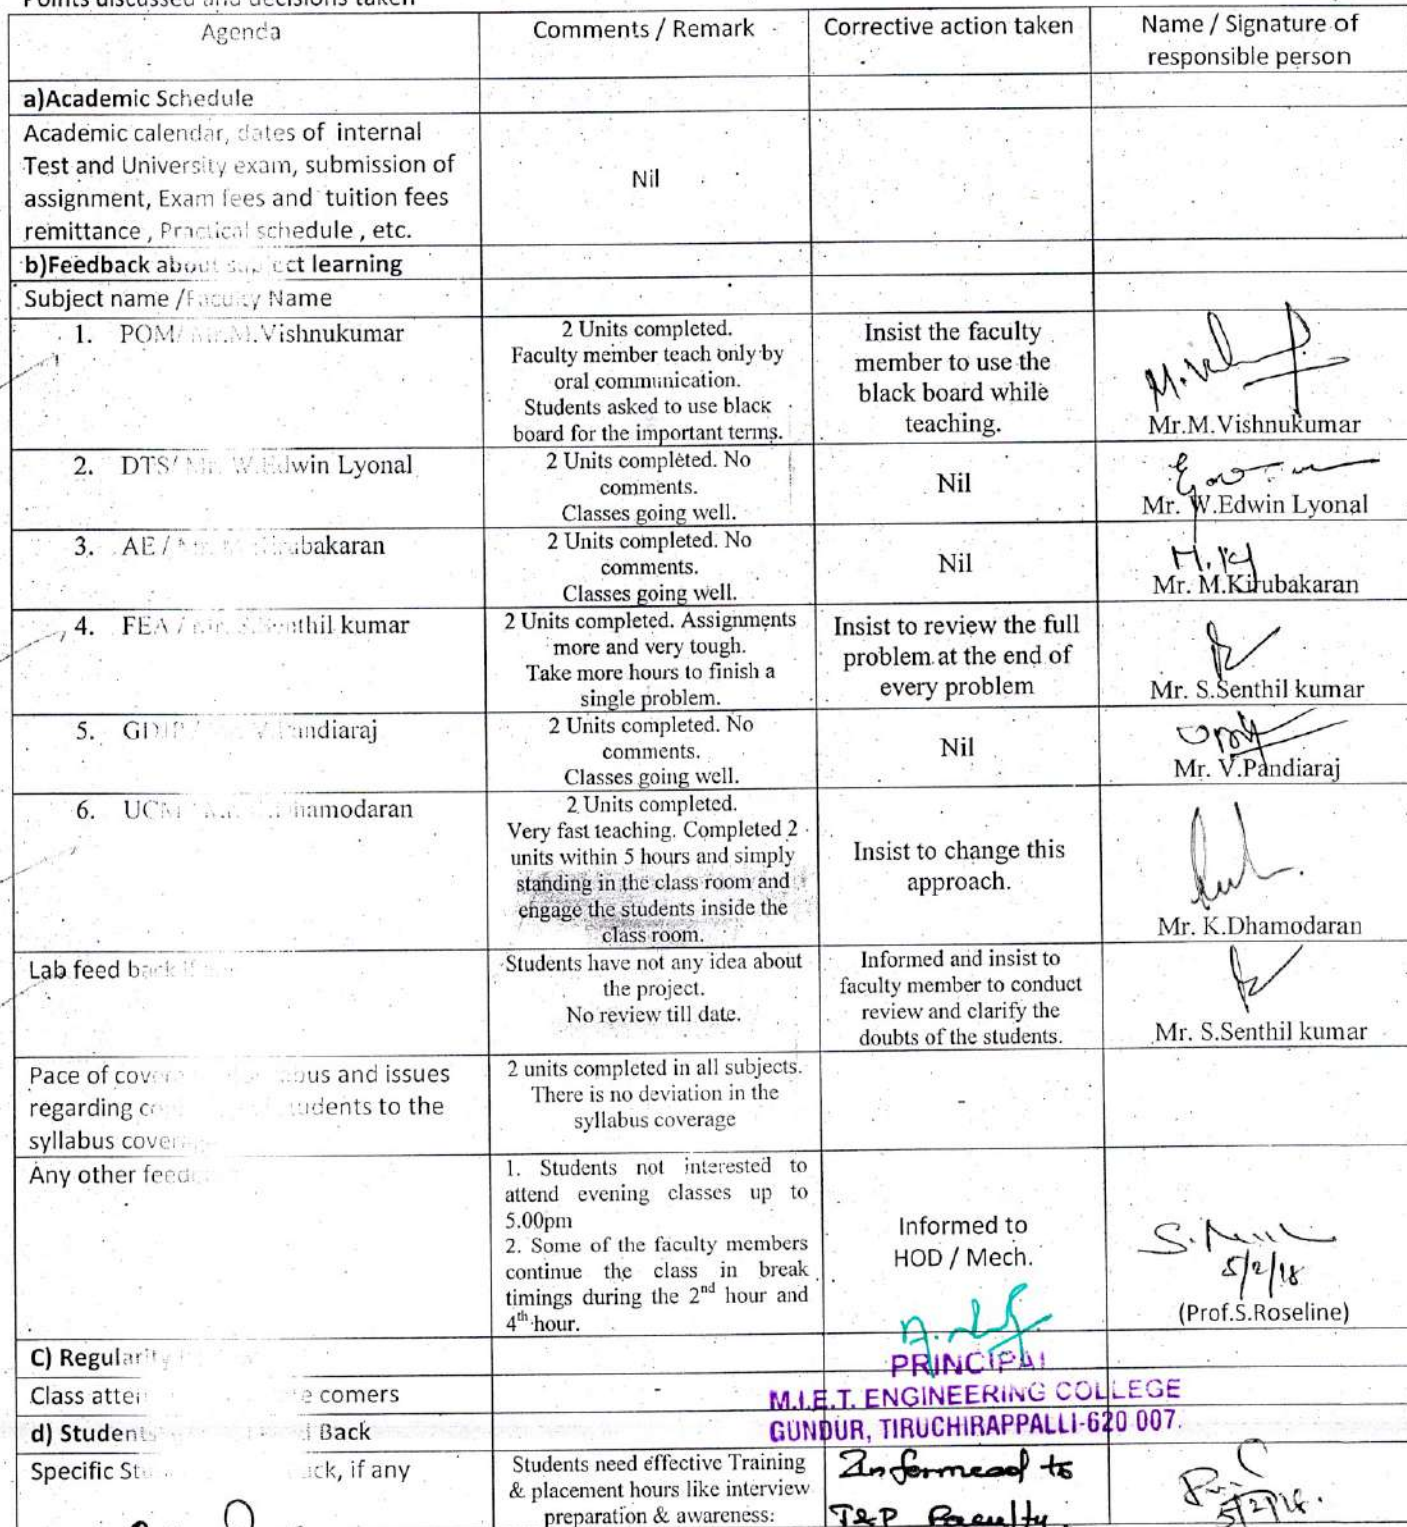 Points discussed and decisions taken
Agenda
Comments / Remark
Corrective action taken
Name / Signature of
responsible person
a)Academic Schedule
Academic calendar, dates of internal
Test and University exam, submission of
assignment, Exam fees and tuition fees
remittance , Practical schedule , etc.
Nil
b)Feedback about subject learning
Subject name /Faculty Name
1. POM/ Mr.M.Vishnukumar
2 Units completed.
Faculty member teach only by
oral communication.
Students asked to use black
board for the important terms.
Insist the faculty
member to use the
black board while
teaching.
Mr.M.Vishnukumar
2. DTS/ Mr. W.Edwin Lyonal
2 Units completed. No
comments.
Classes going well.
Nil
Mr. W.Edwin Lyonal
3. AE / Mr. M.Kirubakaran
2 Units completed. No
comments.
Classes going well.
Nil
Mr. M.Kirubakaran
4. FEA / Mr. S.Senthil kumar
2 Units completed. Assignments
more and very tough.
Take more hours to finish a
single problem.
Insist to review the full
problem at the end of
every problem
Mr. S.Senthil kumar
5. V.Pandiaraj
2 Units completed. No
comments.
Classes going well.
Nil
Mr. V.Pandiaraj
6. UCM / Mr. K.Dhamodaran
2 Units completed.
Very fast teaching. Completed 2
units within 5 hours and simply
standing in the class room and
engage the students inside the
class room.
Insist to change this
approach.
Mr. K.Dhamodaran
Lab feed back if
Students have not any idea about
the project.
No review till date.
Informed and insist to
faculty member to conduct
review and clarify the
doubts of the students.
Mr. S.Senthil kumar
Pace of and issues
regarding students to the
syllabus coverage
2 units completed in all subjects.
There is no deviation in the
syllabus coverage
-
Any other
1. Students not interested to
attend evening classes up to
5.00pm
2. Some of the faculty members
continue the class in break
timings during the 2nd hour and
4th hour.
Informed to
HOD / Mech.
5/2/18
(Prof.S.Roseline)
C) Regularity
PRINCIPAL
M.I.E.T. ENGINEERING COLLEGE
GUNDUR, TIRUCHIRAPPALLI-620 007.
Class comers
-
d) Students Back
Specific if any
Students need effective Training
& placement hours like interview
preparation & awareness:
Informead to
T&P Faculty.
5/2/18.